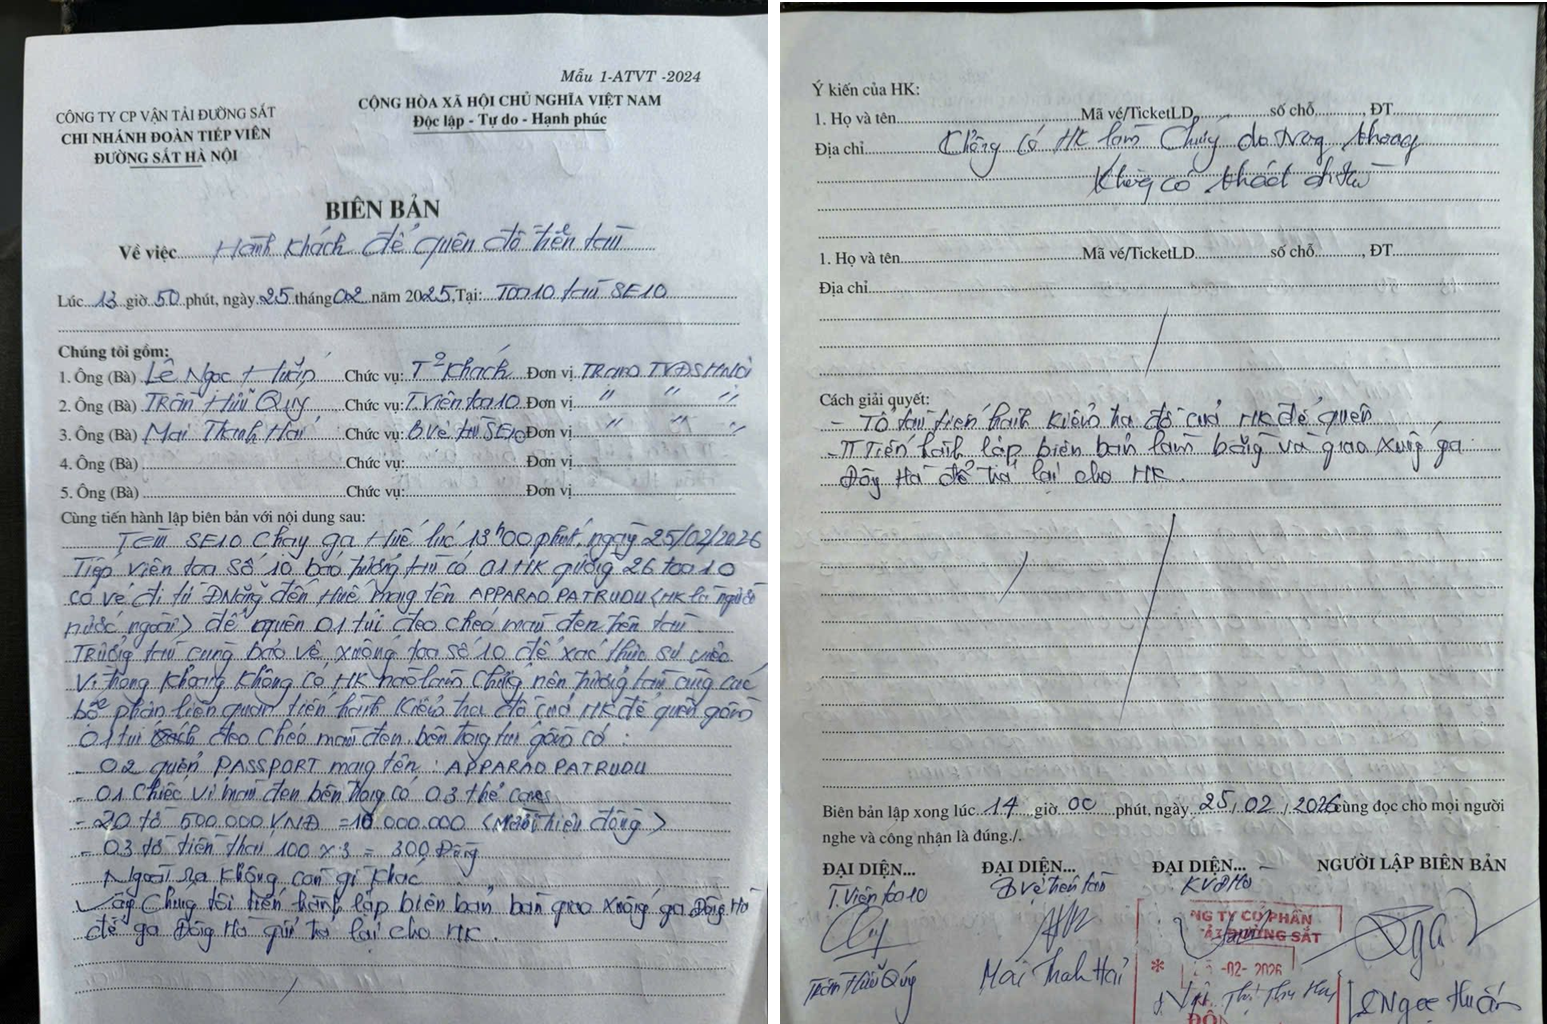 Mẫu 1-ATVT -2024
CÔNG TY CP VẬN TẢI ĐƯỜNG SẮT
CHI NHÁNH ĐOÀN TIẾP VIÊN
ĐƯỜNG SẮT HÀ NỘI
CỘNG HÒA XÃ HỘI CHỦ NGHĨA VIỆT NAM
Độc lập - Tự do - Hạnh phúc
BIÊN BẢN
Về việc Hành khách để quên đồ trên tàu
Lúc 13 giờ 50 phút, ngày 25 tháng 02 năm 2025, Tại: Toa 10 tàu SE10
Chúng tôi gồm:
1. Ông (Bà) Lê Ngọc Chức vụ: T² Khách Đơn vị
2. Ông (Bà) Trần Hữu Quý Chức vụ: T.Viên toa 10 Đơn vị " " "
3. Ông (Bà) Mai Thanh Hải Chức vụ: B.vệ tàu SE10 Đơn vị " " "
4. Ông (Bà) Chức vụ: Đơn vị
5. Ông (Bà) Chức vụ: Đơn vị
Cùng tiến hành lập biên bản với nội dung sau:
Tàu SE10 Chạy ga Huế lúc 13h00 phút ngày 25/02/2026
Tiếp viên toa số 10 báo trưởng tàu có 01 HK giường 26 toa 10
có vé đi từ ĐNẵng đến Huế mang tên APPARAO PATRUDU (HK là người
nước ngoài) để quên 01 túi đeo chéo màu đen trên tàu
Trưởng tàu cùng bảo vệ xuống toa số 10 để xác thực sự việc
Vì trong khoang không có HK nào làm chứng nên trưởng tàu cùng các
bộ phận liên quan tiến hành kiểm tra đồ của HK để quên gồm
01 túi đeo chéo màu đen bên trong túi gồm có:
- 02 quển PASSPORT mang tên: APPARAO PATRUDU
- 01 Chiếc ví màu đen bên trong có 03 thẻ
- 20 tờ 500.000 VNĐ = 10.000.000 (Mười triệu đồng)
- 03 tờ tiền thái 100 x 3 = 300 Đồng
Ngoài ra không còn gì khác
Vậy Chúng tôi tiến hành lập biên bản bàn giao xuống ga Đông Hà
để ga Đông Hà gửi trả lại cho HK.
Ý kiến của HK:
1. Họ và tên Mã vé/TicketLD số chỗ, ĐT
Địa chỉ Không có HK làm Chứng do trong khoang
không có khách
1. Họ và tên Mã vé/TicketLD số chỗ, ĐT
Địa chỉ
Cách giải quyết:
- Tổ tàu tiến hành kiểm tra đồ của HK để quên
- Tiến hành lập biên bản làm bằng và giao xuống ga
Đông Hà để trả lại cho HK.
Biên bản lập xong lúc 14 giờ 00 phút, ngày 25/02/2026 cùng đọc cho mọi người
nghe và công nhận là đúng./.
ĐẠI DIỆN... ĐẠI DIỆN... ĐẠI DIỆN... NGƯỜI LẬP BIÊN BẢN
T.Viên toa 10
NG TY CỔ PHẦN
TẢI ĐƯỜNG SẮT
-02- 2026
Trần Hữu Quý Mai Thanh Hải